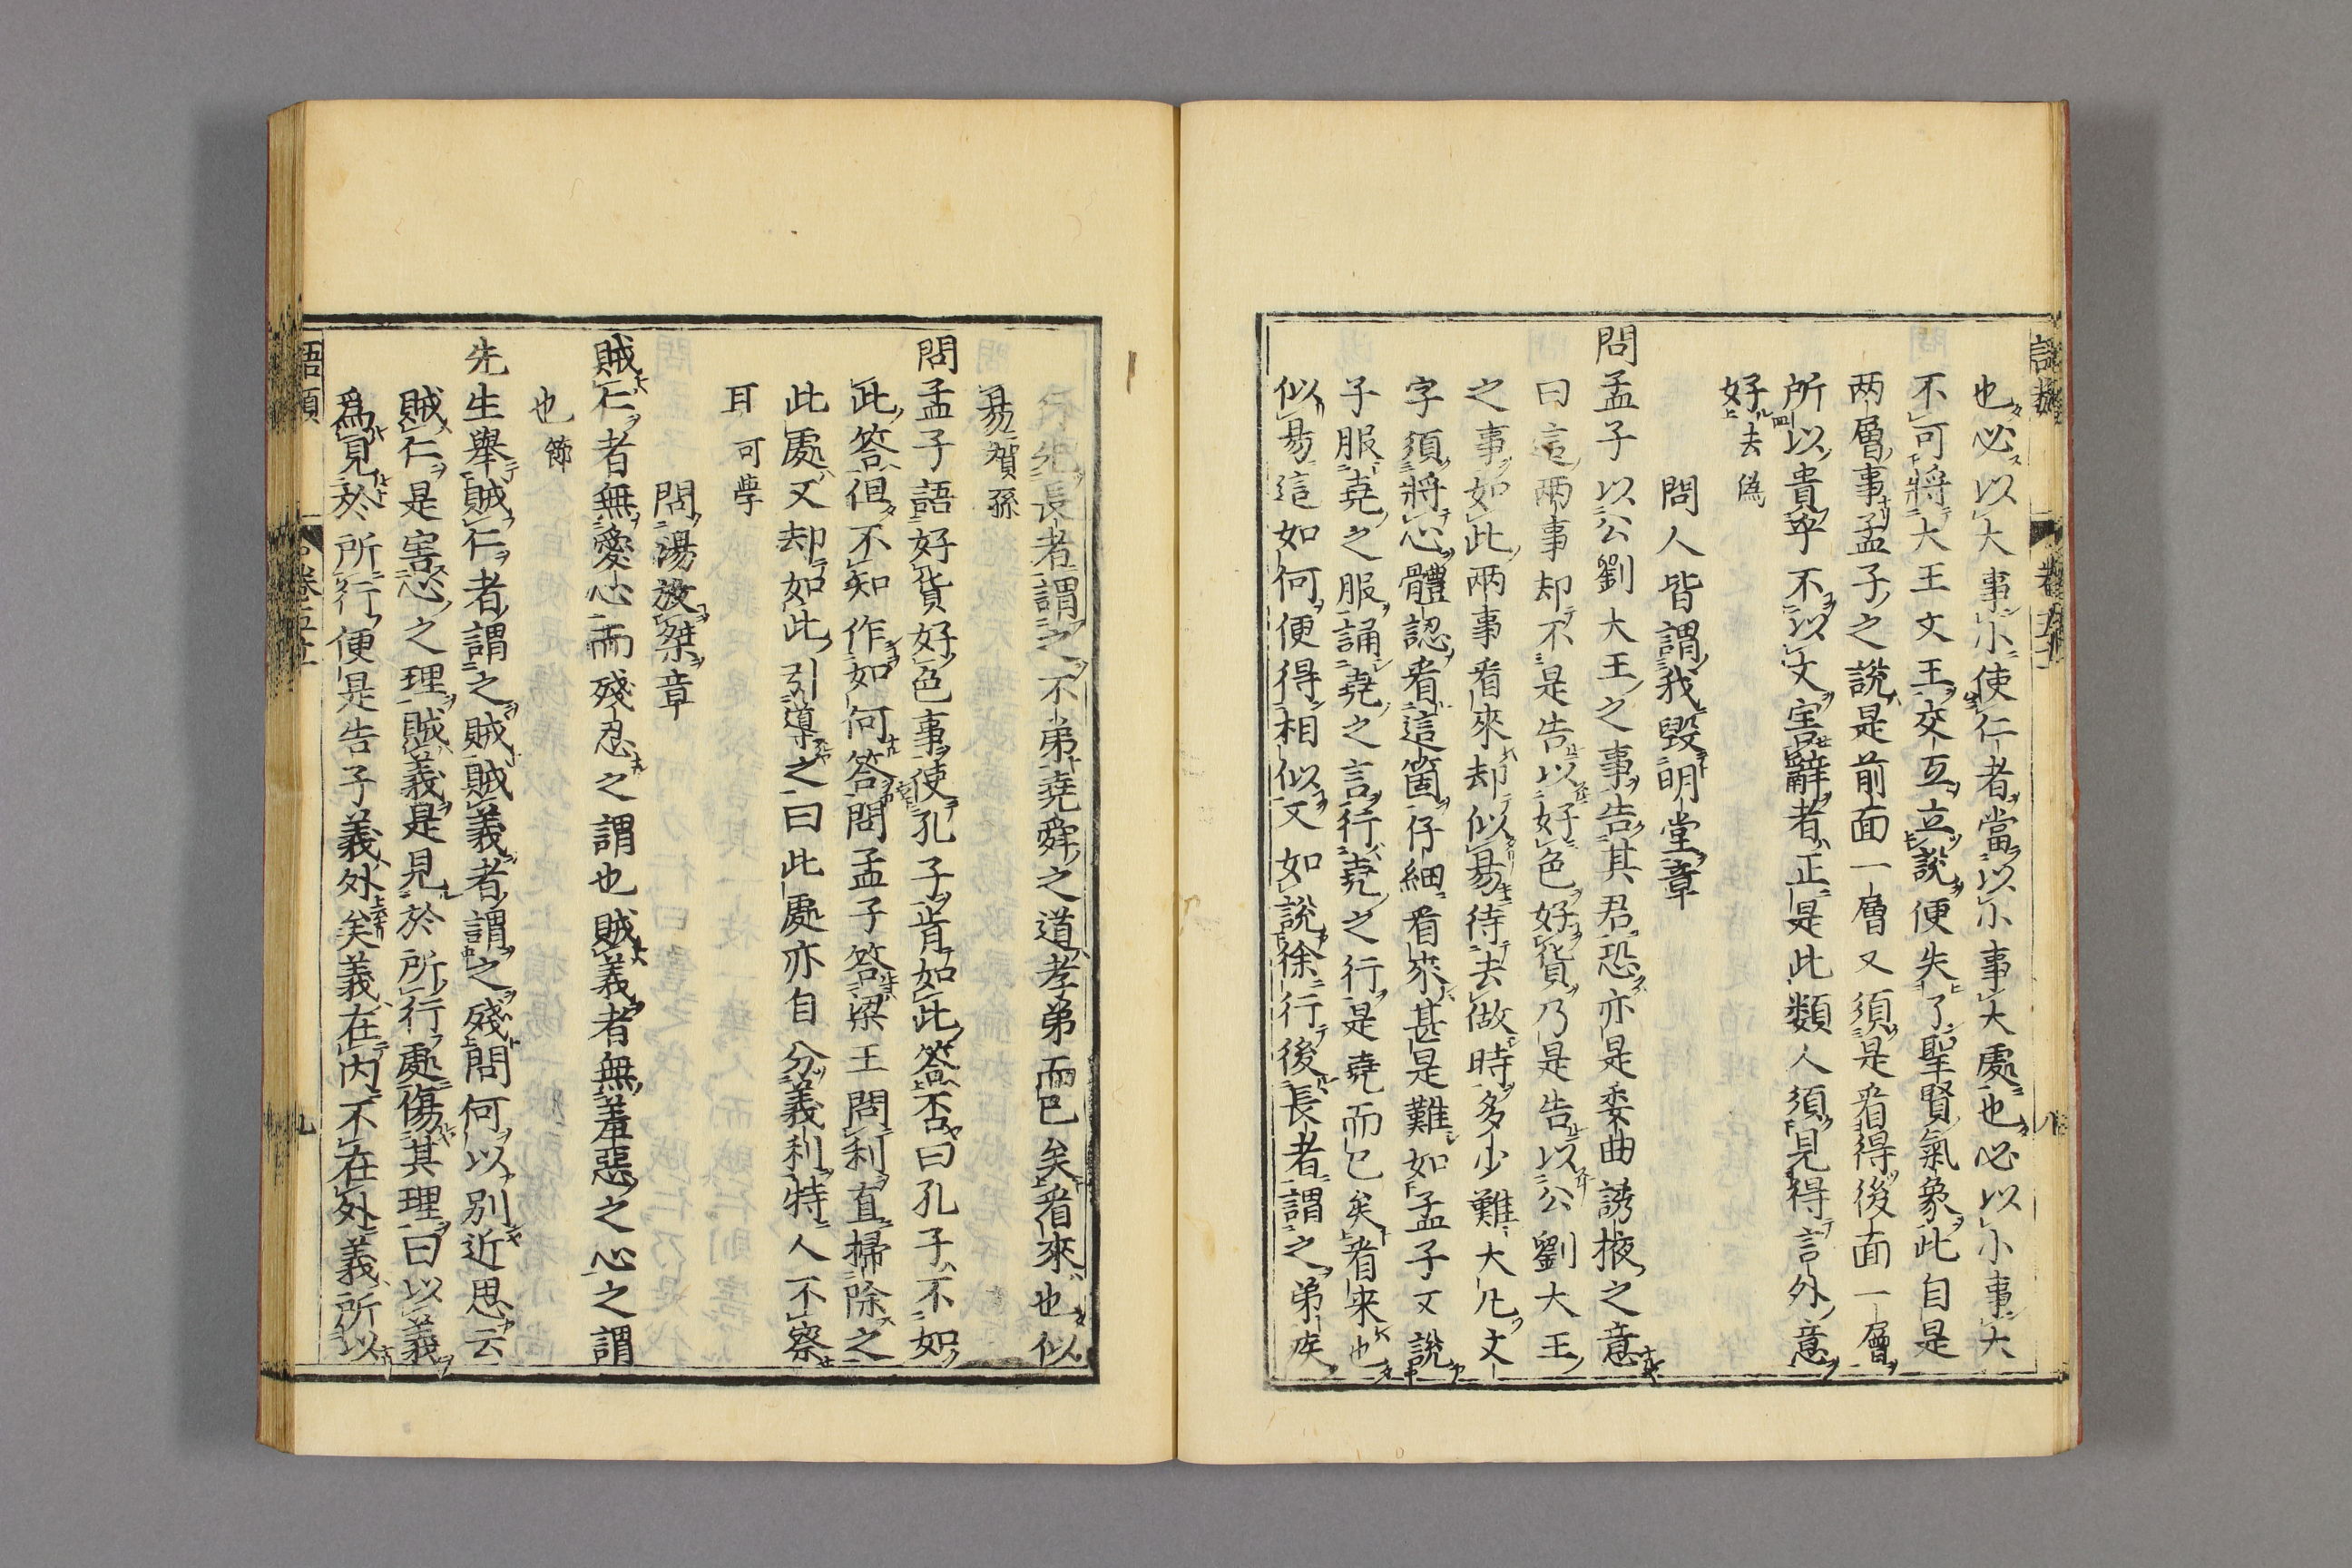 也必以大事小使仁者當以小事大處也必以小事大
不可將大王文王交互立說便失了聖賢氣象此自是
两層事孟子之說是前面一層又須是看得後面一層
所以貴乎不以文害辭者正是此類人須見得言外意
好去偽
問人皆謂我毀明堂章
問孟子以公劉大王之事告其君恐亦是委曲誘掖之意
曰這兩事却不是告以好色好貨乃是告以公劉大王
之事如此兩事看來却似易待去做時多少難大凡文
字須將心體認看這箇仔細看來甚是難如孟子又說
子服堯之服誦堯之言行堯之行是堯而已矣看来也
似易這如何便得相似又如說徐行後長者謂之弟疾
行先長者謂之不弟堯舜之道孝弟而已矣看來也似
易賀孫
問孟子語好貨好色事使孔子肯如此答否曰孔子不如
此答但不知作如何答問孟子答梁王問利直掃除之
此處又却如此引導之曰此處亦自分義利特人不察
耳可學
問湯放桀章
賊仁者無愛心而殘忍之謂也賊義者無羞惡之心之謂
也節
先生舉賊仁者謂之賊賊義者謂之殘問何以別近思云
賊仁是害心之理賊義是見於所行處傷其理曰以義
為見於所行便是告子義外矣義在內不在外義所以
語類
卷五十一
九